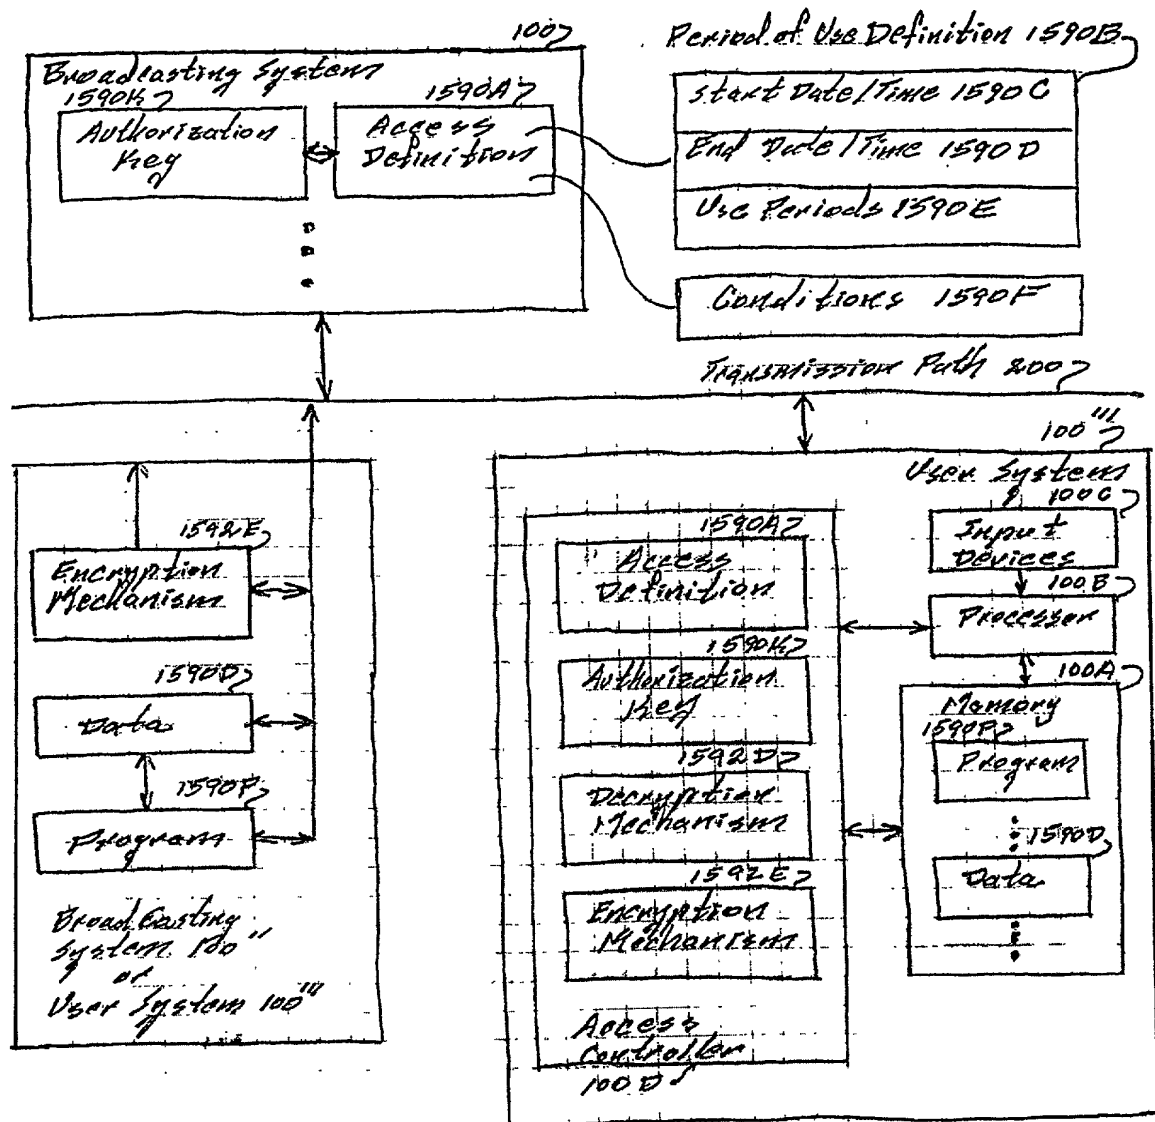 100
Broadcasting System
1590K
Authorization
Key
1590A
Access
Definition
Period of Use Definition 1590B
Start Date/Time 1590C
End Date/Time 1590D
Use Periods 1590E
Conditions 1590F
Transmission Path 200
1592E
Encryption
Mechanism
1590D
Data
1590P
Program
BroadCasting
System 100"
or
User System 100'''
100'''
User System
1590A
Access
Definition
1590K
Authorization
Key
1592D
Decryption
Mechanism
1592E
Encryption
Mechanism
Access
Controller
100D
100C
Input
Devices
100B
Processor
100A
Memory
1590P
Program
1590D
Data